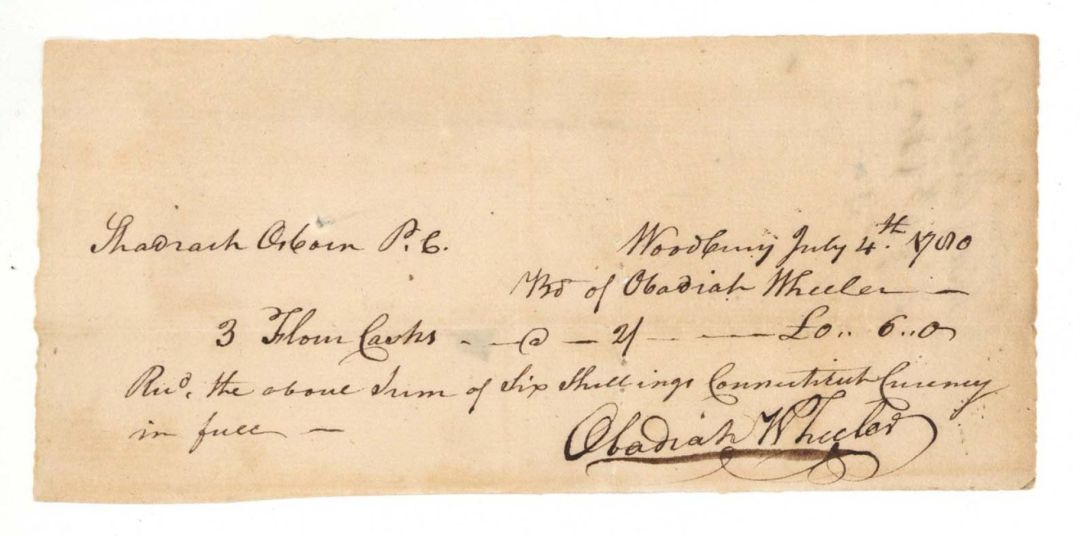 Shadrach Osborn P. C. Woodbury July 4th. 1780
Bo't of Obadiah Wheeler —
3 Flour Casks - - @ — 2/ - - —— £0.. 6..0
Recd. the above Sum of Six Shillings Connecticut Curency
in full —
Obadiah Wheeler